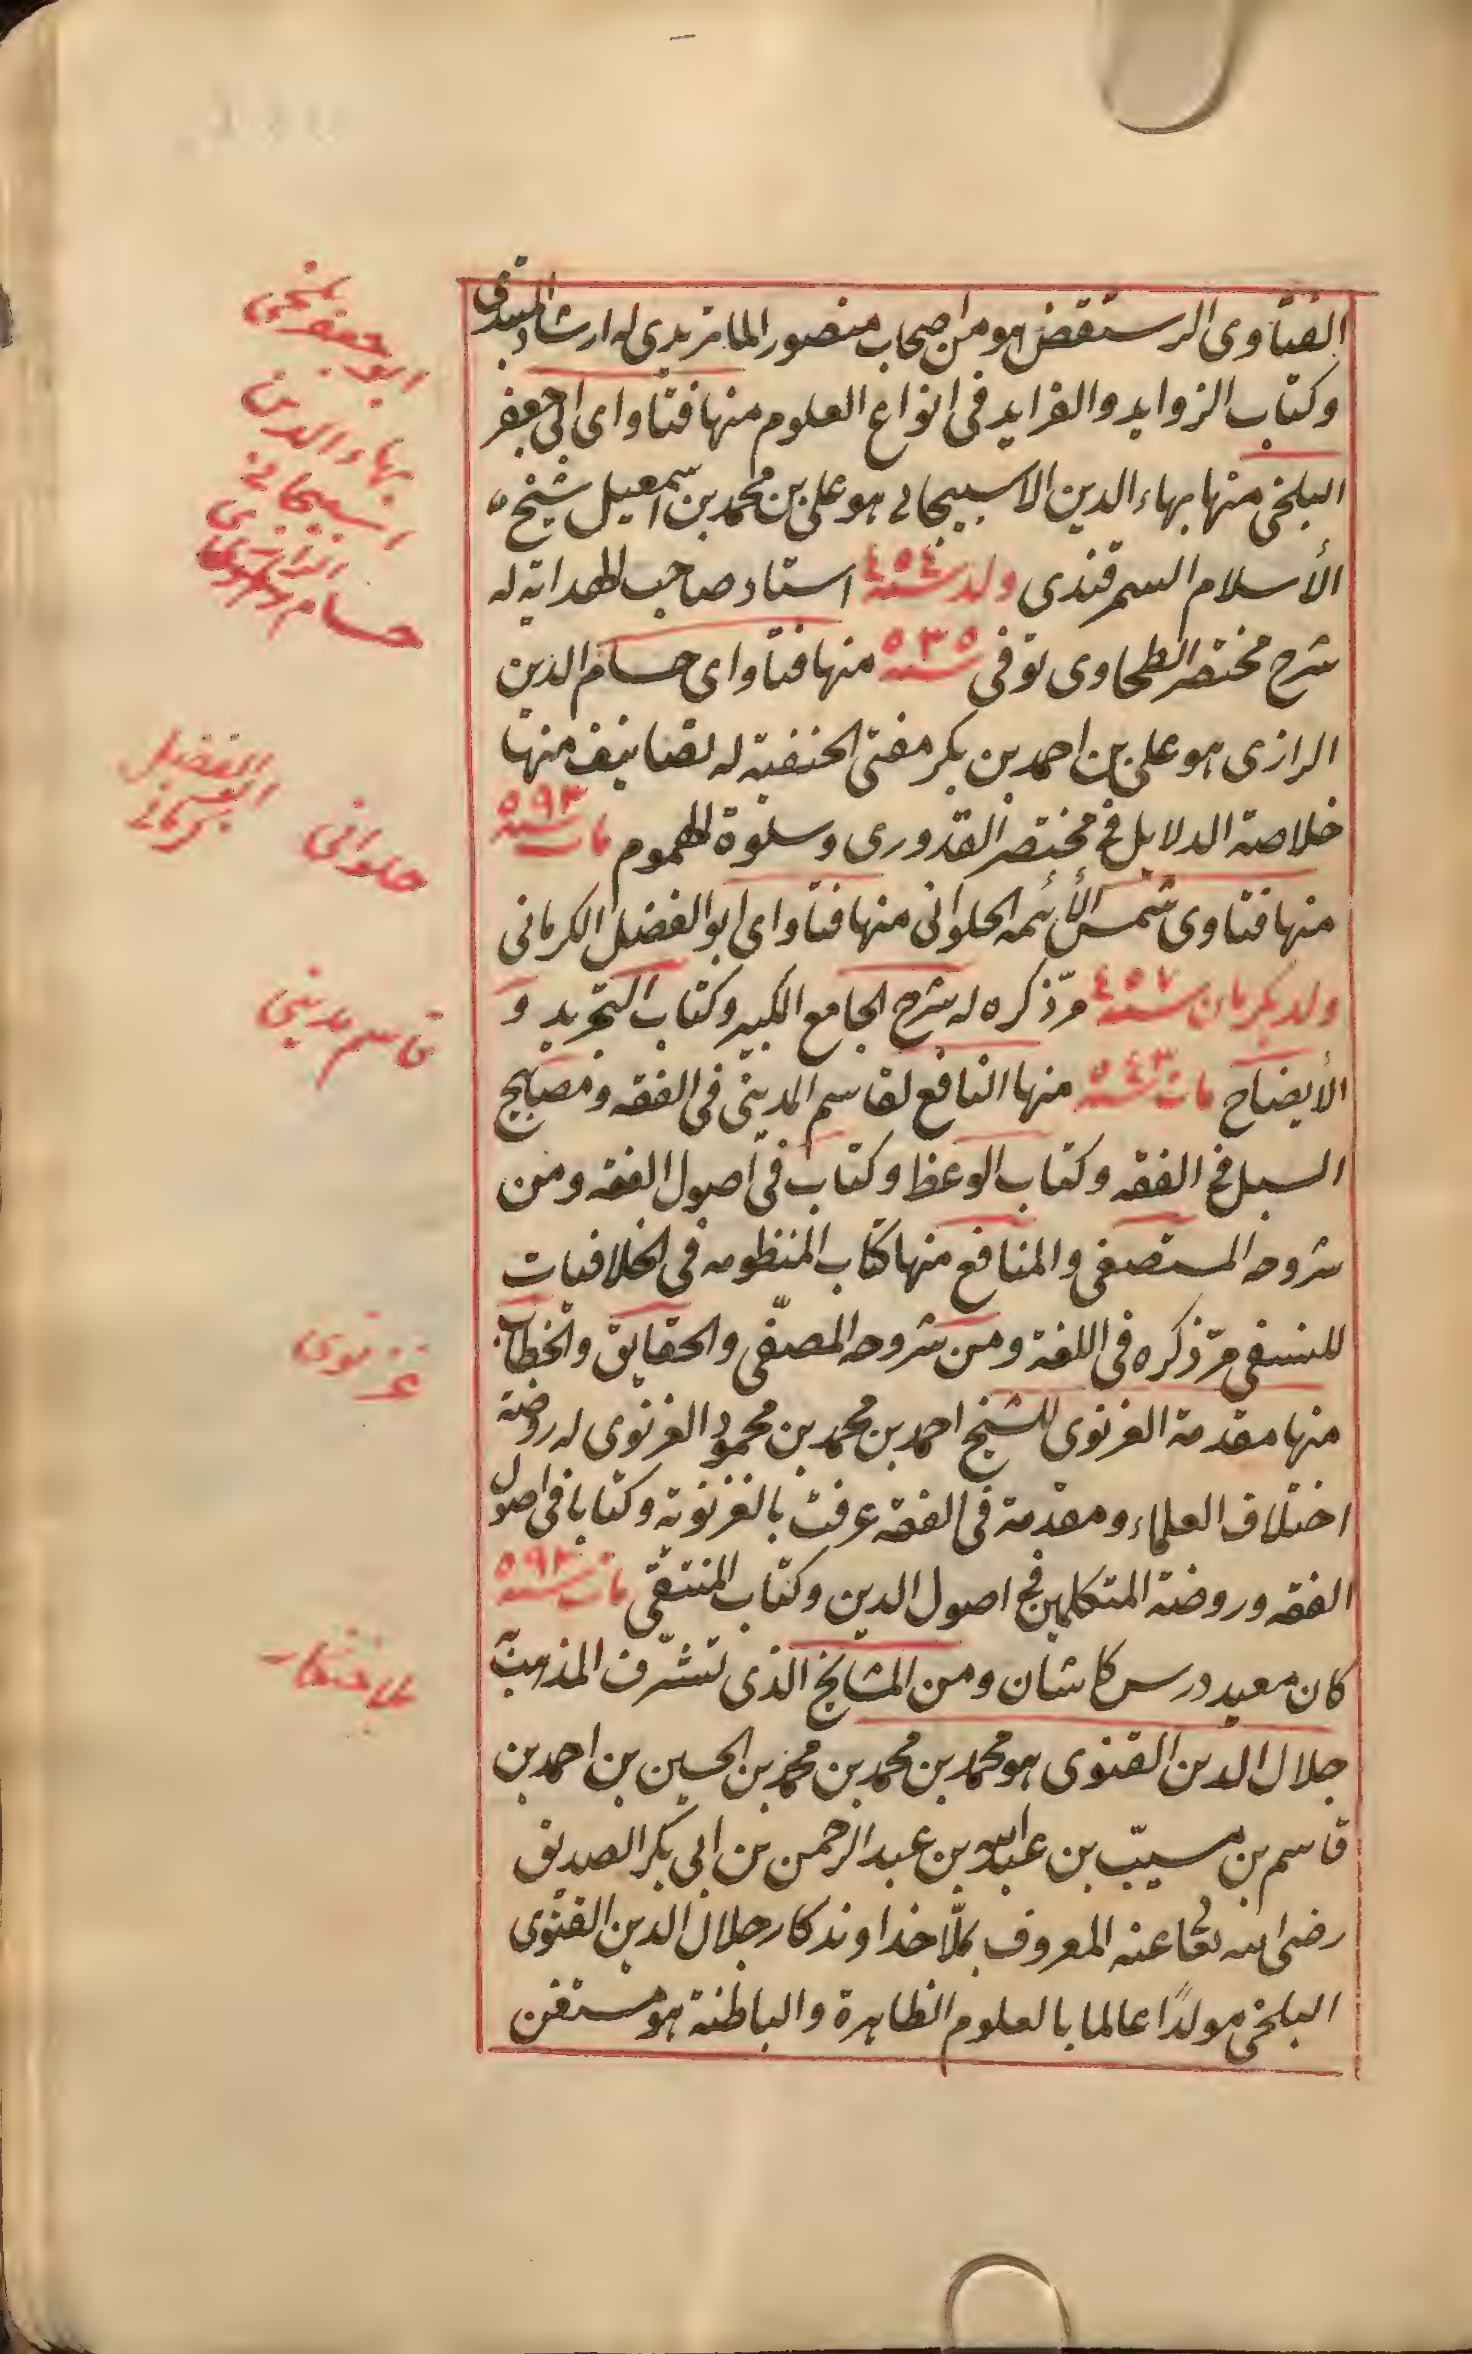 الفتاوى الرستقض هو من اصحاب منصور الماتريدى له ارشاد المبتدى
وكتاب الزوايد والفرايد فى انواع العلوم منها فتاواى ابى جعفر
البلخى منها بهاء الدين الاسبيجابى هو على بن محمد بن اسمعيل شيخ
الأسلام السمرقندى ولد سنه ٤٥٤ استاد صاحب الهدايه له
شرح مختصر الطحاوى توفى سنه ٥٣٥ منها فتاواى حسام الدين
الرازى هو على بن احمد بن بكر مفتى الحنفية له تصانيف منها
خلاصة الدلايل فى مختصر القدورى وسلوة الهموم مات سنه ٥٩٣
منها فتاوى شمس الأئمه الحلوانى منها فتاواى ابو الفضل الكرمانى
ولد بكرمان سنه ٤٥٧ مرّ ذكره له شرح الجامع الكبير وكتاب التجريد و
الأيضاح مات سنه ٥٤٣ منها النافع لقاسم المدينى فى الفقه ومصابيح
السبل فى الفقه وكتاب الوعظ وكتاب فى اصول الفقه ومن
شروحه المستصفى والمنافع منها كتاب المنظومه فى الخلافيات
للنسفى مرّ ذكره فى اللغة ومن شروحه المصفّى والحقايق والخطاب
منها مقدمة الغزنوى للشيخ احمد بن محمد بن محمود الغزنوى له روضة
اختلاف العلماء ومقدمة فى الفقه عرفت بالغزنوية وكتابا فى اصول
الفقه وروضة المتكلمين فى اصول الدين وكتاب المنتقى مات سنه ٥٩٣
كان معيد درس كاشان ومن المشايخ الذى تشرّف المذهب
جلال الدين القنوى هو محمد بن محمد بن محمد بن الحسين بن احمد بن
قاسم بن مسيّب بن عبد الله بن عبد الرحمن بن ابى بكر الصديق
رضى الله تعا عنه المعروف بملّا خداوندكار جلال الدين القنوى
البلخى مولدًا عالما بالعلوم الظاهرة والباطنة هو مستغن
ابو جعفر بلخى
بهاء الدين
اسبيجابى
الرازى
حسام
حلوانى
ابو الفضل
كرمانى
قاسم مدينى
غزنوى